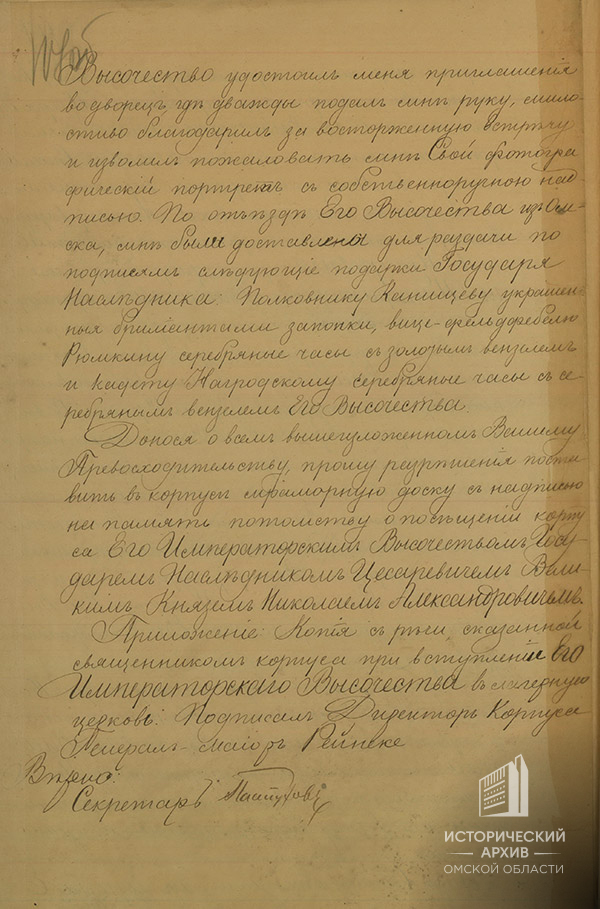 Высочество удостоилъ меня приглашенія
во дворецъ гдѣ дважды подалъ мнѣ руку, мило-
стиво благодарилъ за восторженную встрѣчу
и изволилъ пожаловать мнѣ Свой фотогра
фическій портретъ съ собственноручною над-
писью. По отъѣздѣ Его Высочества изъ Ом-
ска, мнѣ были доставлены для раздачи по
подписямъ слѣдующіе подарки Государя
Наслѣдника: Полковнику Канищеву украшен-
ныя брилiантами запонки, вице-фельдфебелю
Рюмкину серебряные часы съ золотымъ вензелемъ
и кадету Нагродскому серебряные часы съ се-
ребрянымъ вензелемъ Его Высочества.
Донося о всемъ вышеизложенномъ Вашему
Превосходительству, прошу разрѣшенія поста-
вить въ корпусѣ мраморную доску съ надписью
на память потомству о посѣщеніи корпу
са Его Императорскимъ Высочествомъ Госу-
даремъ Наслѣдникомъ Цесаревичемъ Вели-
кимъ Княземъ Николаемъ Александровичемъ.
Приложеніе: Копія съ рѣчи, сказанной
священникомъ корпуса при вступленіи Его
Императорскаго Высочества въ
церковь. Подписалъ Директоръ Корпуса
Генералъ-маіоръ Рейнеке
Вѣрно:
Секретарь
ИСТОРИЧЕСКИЙ
АРХИВ
ОМСКОЙ ОБЛАСТИ